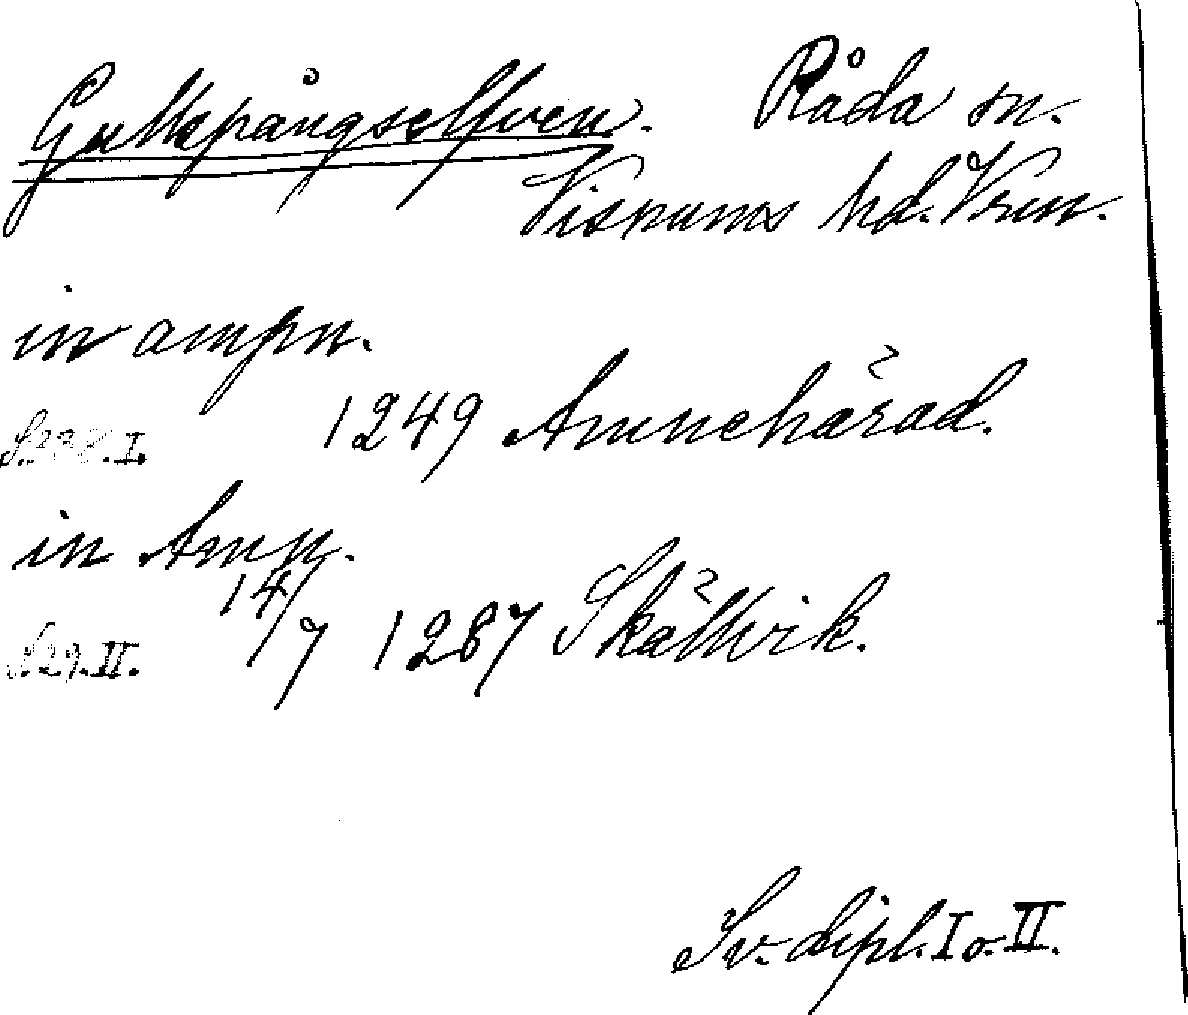 Gullspångselfven. Råda sn.
Visnums hd. Vrm.
in ampn.
1249 Amnehärad.
S. I.
in Amn.
14/7 1287 Skällvik.
S. 29. II.
Sv. dipl. I o. II.